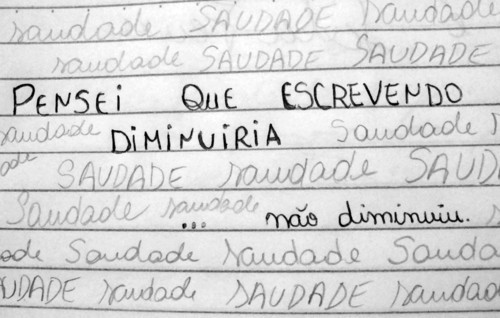 saudade SAUDADE saudade
saudade SAUDADE SAUDADE
PENSEI QUE ESCREVENDO
saudade DIMINUIRIA Saudade
ade SAUDADE saudade SAUD
Saudade saudade ... não diminuiu.
ade Saudade saudade Sauda
UDADE saudade SAUDADE saudad